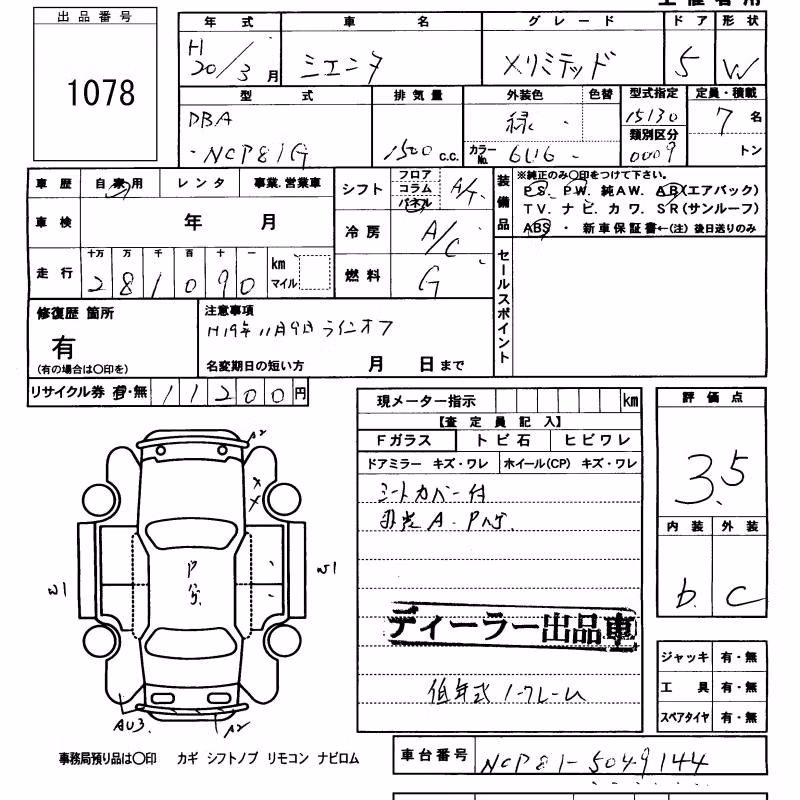 出品番号
1078
年式 車名 グレード ドア 形状
H20/3月 シエンタ Xリミテッド 5 W
型式 排気量 外装色 色替 型式指定 定員・積載
DBA 緑 15130 7名
類別区分
-NCP81G 1500c.c. カラーNo. 6U6 0009 トン
車歴 自家用 レンタ 事業.営業車
シフト フロア コラム パネル A/T
車検 年 月
冷房 A/C
走行 十万 万 千 百 十 一
281090 km マイル
燃料 G
装備品
※純正のみ〇印をつけて下さい。
PS. PW. 純AW. AB(エアバック)
TV. ナビ. カワ. SR(サンルーフ)
ABS ・ 新車保証書←(注) 後日送りのみ
セールスポイント
修復歴 箇所
有
(有の場合は〇印を)
注意事項
H19年11月9日ラインオフ
名変期日の短い方 月 日まで
リサイクル券 有・無 11200円
現メーター指示 km
【査定員記入】
Fガラス トビ石 ヒビワレ
ドアミラー キズ・ワレ ホイール(CP) キズ・ワレ
シートカバー付
ディーラー出品車
評価点
3.5
内装 外装
b. C
A2
W1
W1
AU3.
A2
ジャッキ 有・無
工具 有・無
スペアタイヤ 有・無
事務局預り品は〇印 カギ シフトノブ リモコン ナビロム
車台番号 NCP81-5049144